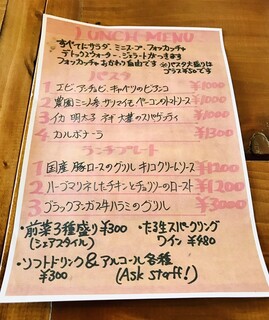 LUNCH MENU
すべてにサラダ、ミニスープ、フォッカッチャ
デトックスウォーター、ジェラートがつきます
フォッカッチャおかわり自由です ※パスタ大盛りは
プラス¥50です
パスタ
1 エビ、アンチョビ、キャベツのビアンコ ¥1000
2 農園ミニトマト サツマイモ ベーコンのトマトソース ¥1000
3 イカ 明太子 大葉のスパゲティ ¥1000
4 カルボナーラ ¥1300
ランチプレート
1 国産豚ロースのグリル キノコクリームソース ¥1200
2 ハーブマリネしたチキンとチョリソーのロースト ¥1200
3 ブラックアンガス牛ハラミのグリル ¥3000
・前菜3種盛り¥300
(シェアスタイル)
・たる生スパークリング
ワイン ¥480
・ソフトドリンク&アルコール各種
¥300 (Ask staff!)